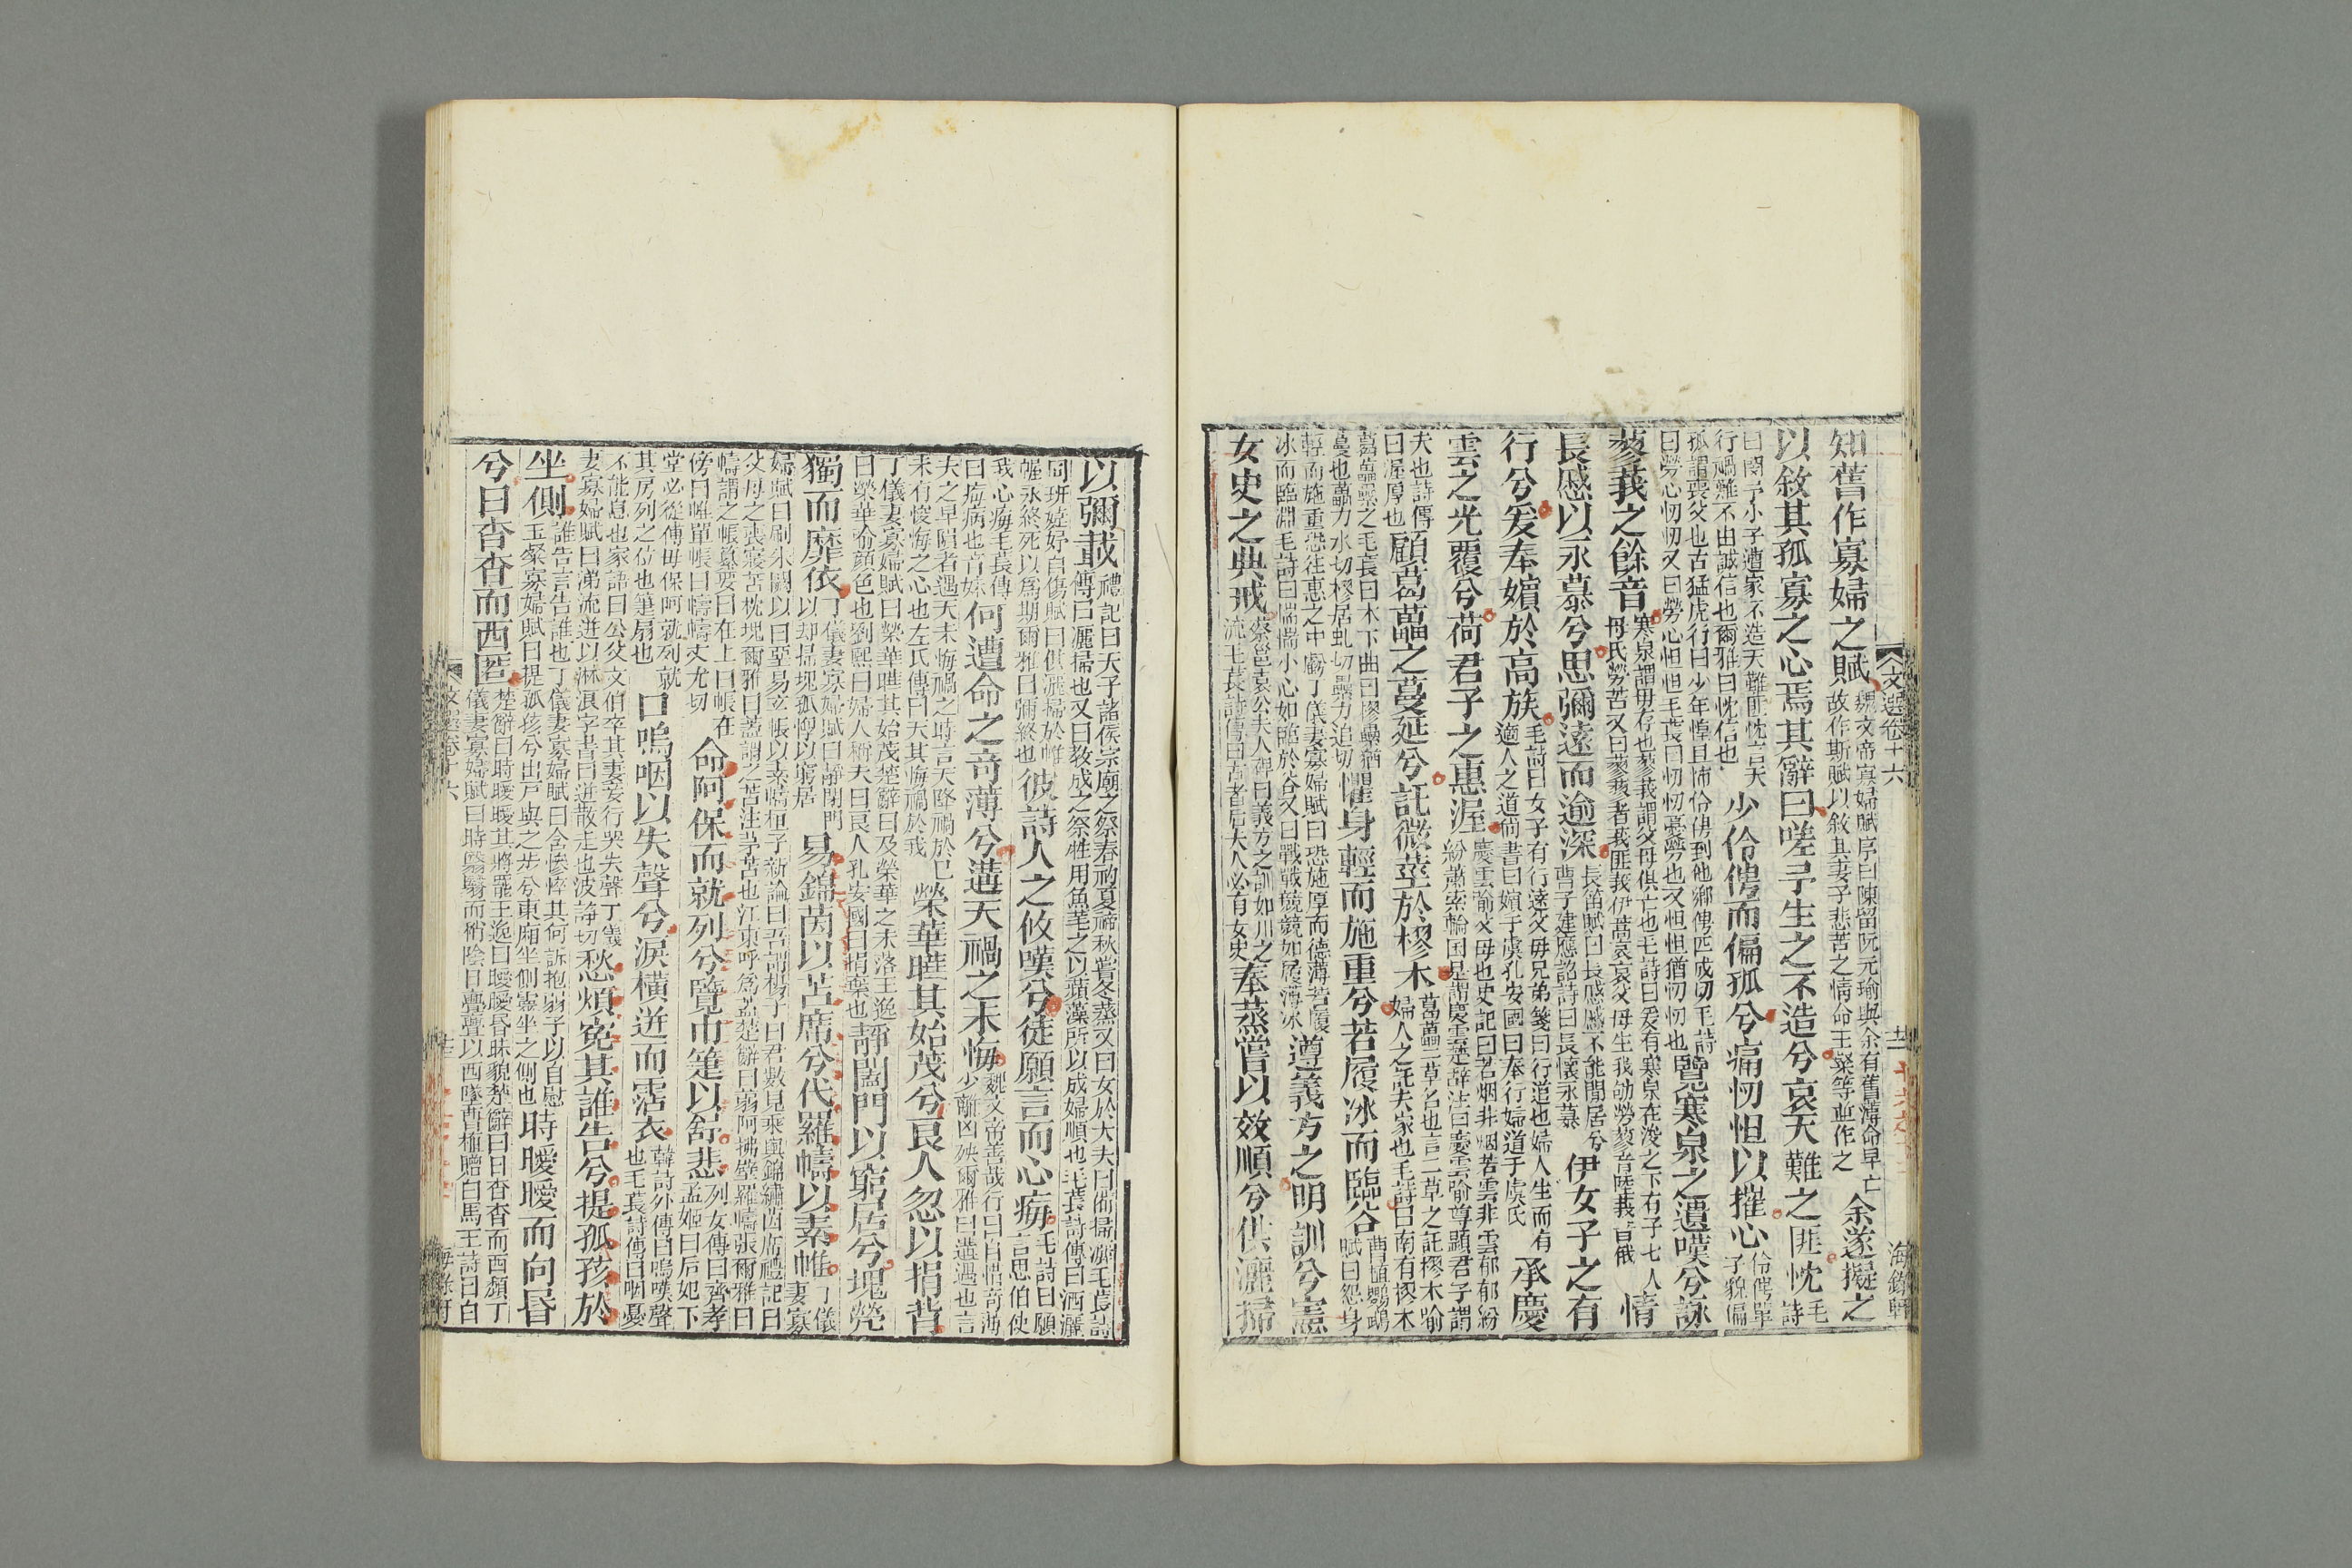 文選卷十六 海錄軒
知舊作寡婦之賦魏文帝寡婦賦序曰陳留阮元瑜與余有舊薄命早亡故作斯賦以敘其妻子悲苦之情命王粲等並作之余遂擬之
以敘其孤寡之心焉其辭曰嗟予生之不造兮哀天難之匪忱毛詩
曰閔予小子遭家不造天難匪忱言天行禍難不由誠信也爾雅曰忱信也少伶俜而偏孤兮痛忉怛以摧心伶俜單子貌偏
孤謂喪父也古猛虎行曰少年惶且怖伶俜到他鄉俜匹成切毛詩曰勞心忉忉又曰勞心怛怛毛萇曰忉忉憂勞也又怛怛猶忉忉也覽寒泉之遺嘆兮詠
蓼莪之餘音寒泉謂母存也蓼莪謂父母俱亡也毛詩曰爰有寒泉在浚之下有子七人母氏勞苦又曰蓼蓼者莪匪莪伊蒿哀哀父母生我劬勞蓼音陸莪音俄情
長慼以永慕兮思彌遠而逾深長笛賦曰長慼慼不能閒居兮曹子建應詔詩曰長懷永慕伊女子之有
行兮爰奉嬪於高族毛詩曰女子有行遠父母兄弟箋曰行道也婦人生而有適人之道尚書曰嬪于虞孔安國曰奉行婦道于虞氏承慶
雲之光覆兮荷君子之惠渥慶雲喻父母也史記曰若烟非烟若雲非雲郁郁紛紛蕭索輪囷是謂慶雲楚辭注曰慶雲喻尊顯君子謂
夫也詩傳曰渥厚也顧葛藟之蔓延兮託微莖於樛木葛藟二草名也言二草之託樛木喻婦人之託夫家也毛詩曰南有樛木
葛藟纍之毛萇曰木下曲曰樛纍猶蔓也藟力水切樛居虬切纍力追切懼身輕而施重兮若履冰而臨谷曹植鸚鵡賦曰怨身
輕而施重恐往惠之中虧丁儀妻寡婦賦曰恐施厚而德薄若履冰而臨淵毛詩曰惴惴小心如臨於谷又曰戰戰兢兢如履薄冰遵義方之明訓兮憲
女史之典戒蔡邕袁公夫人碑曰義方之訓如川之流毛萇詩傳曰古者后夫人必有女史奉蒸嘗以效順兮供灑掃
以彌載禮記曰天子諸侯宗廟之祭春礿夏禘秋嘗冬蒸又曰女於大夫曰備掃灑毛萇詩傳曰灑掃也又曰教成之祭牲用魚芼之以蘋藻所以成婦順也毛萇詩傳曰洒灑
同班婕妤自傷賦曰供灑掃於帷幄永終死以爲期爾雅曰彌終也彼詩人之攸嘆兮徒願言而心痗毛詩曰願言思伯使
我心痗毛萇傳曰痗病也音妹何遭命之奇薄兮遘天禍之未悔魏文帝善哉行曰自惜奇薄少離凶殃爾雅曰遘遇也言
夫之早隕者遇天未悔禍之時言天降禍於己未有悛悔之心也左氏傳曰天其悔禍於我榮華曄其始茂兮良人忽以捐背
丁儀妻寡婦賦曰榮華曄其始茂楚辭曰及榮華之未落王逸曰榮華喻顏色也劉熙曰婦人稱夫曰良人孔安國曰捐棄也靜闔門以窮居兮塊煢
獨而靡依丁儀妻寡婦賦曰靜閉門以却掃塊孤惸以窮居易錦茵以苫席兮代羅幬以素帷丁儀妻寡
婦賦曰刷朱闕以白堊易玄帳以素幬桓子新論曰吾謂楊子曰君數見乘輿錦繡茵席禮記曰父母之喪寢苫枕塊爾雅曰蓋謂之苫注茅苫也江東呼爲蓋楚辭曰蒻阿拂壁羅幬張爾雅曰
幬謂之帳纂要曰在上曰帳在傍曰帷單帳曰幬幬丈尤切命阿保而就列兮覽巾箑以舒悲列女傳曰齊孝孟姬曰后妃下
堂必從傅母保阿就列就其房列之位也箑扇也口嗚咽以失聲兮淚橫迸而霑衣韓詩外傳曰嗚嘆聲也毛萇詩傳曰咽憂
不能息也家語曰公父文伯卒其妻妾行哭失聲丁儀妻寡婦賦曰涕流迸以淋浪字書曰迸散走也波諍切愁煩冤其誰告兮提孤孩於
坐側誰告言告誰也丁儀妻寡婦賦曰含慘悴其何訴抱弱子以自慰王粲寡婦賦曰提孤孩兮出戶與之步兮東廂坐側靈坐之側也時曖曖而向昏
兮日杳杳而西匿楚辭曰時曖曖其將罷王逸曰曖曖昏昧貌楚辭曰日杳杳而西頹丁儀妻寡婦賦曰時翳翳而稍陰日亹亹以西墜曹植贈白馬王詩曰白